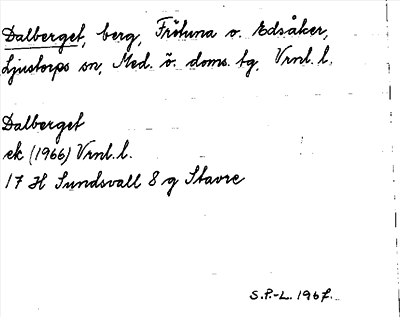 Dalberget, berg, Frötuna o. Edsåker,
Ljustorps sn, Med. ö. doms. tg, Vrnl. l.
Dalberget
ek (1966) Vrnl. l.
17 H Sundsvall 8 g Stavre
S.P.-L. 1967.